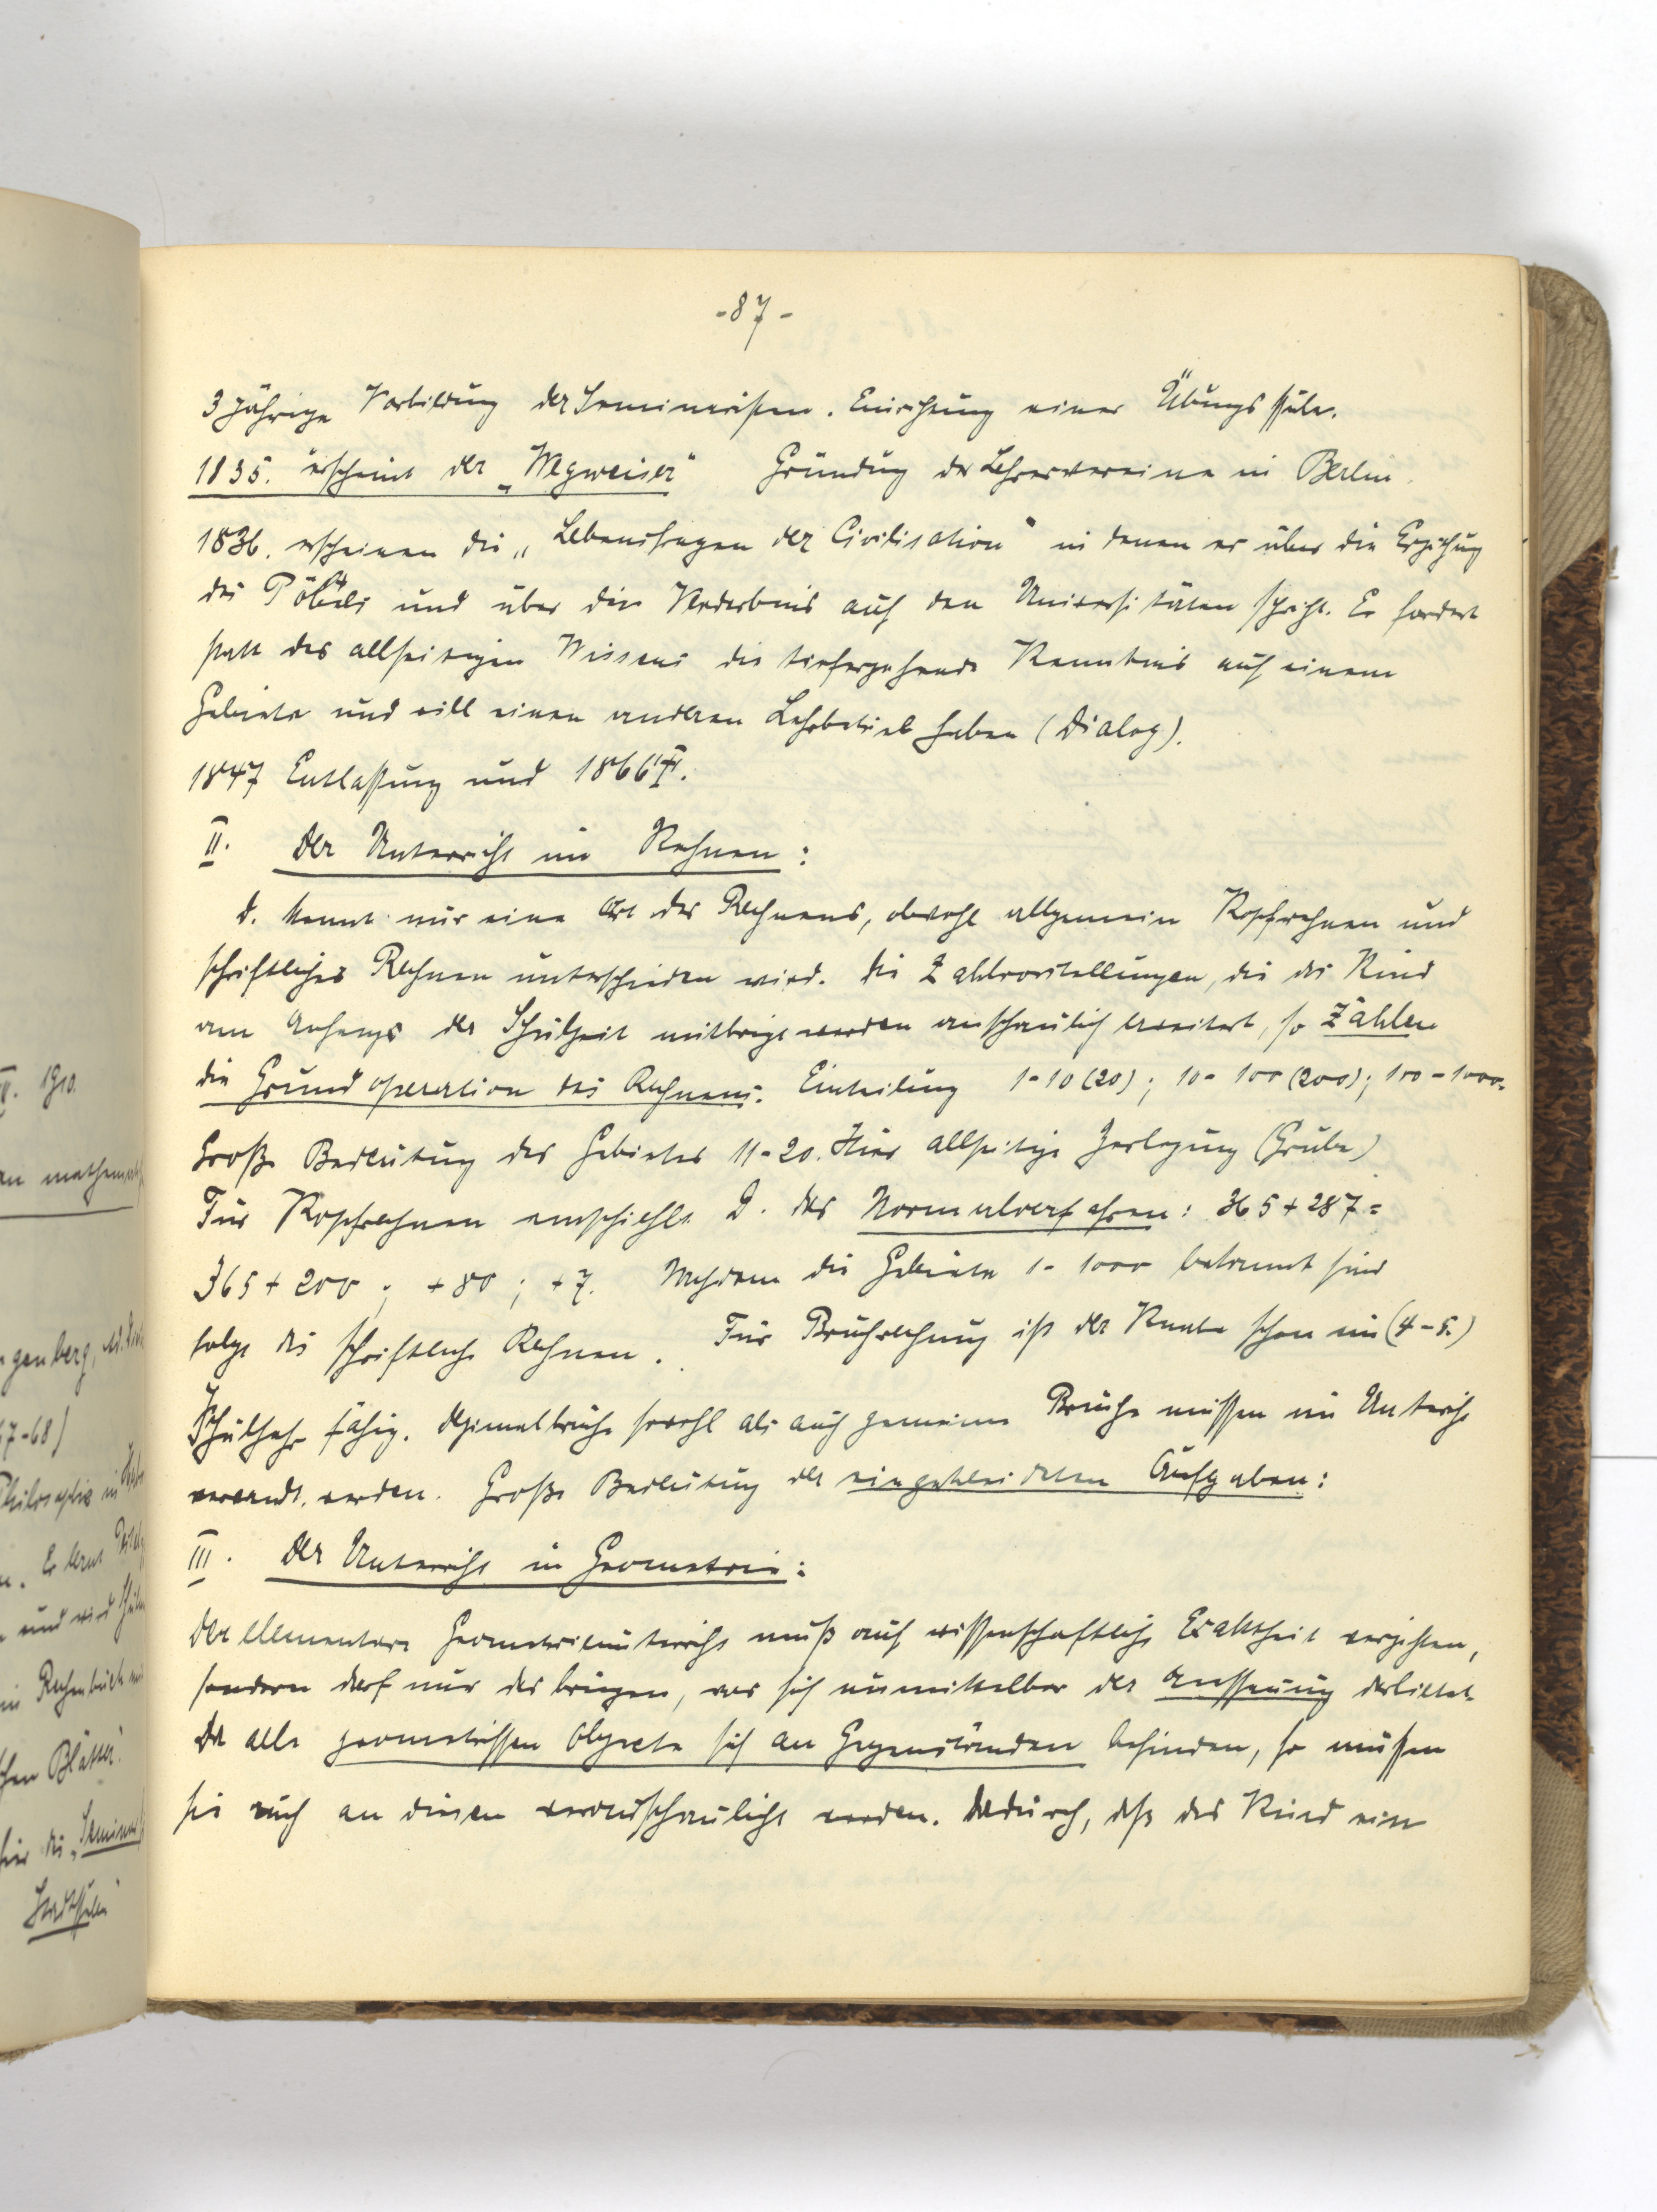 -87-
3 jährige Vorbildung der Seminaristen. Einrichtung einer Übungsschule.
1835. erscheint der „Wegweiser" Gründung der Lehrervereine in Berlin.
1836. erscheinen die „Lebensfragen der Civilisation" in denen er über die Erziehung
des Pöbels und über die Verderbnis auf den Universitäten spricht. Er fordert
statt des allseitigen Wissens die tiefergehende Kenntnis auf einem
Gebiete und will einen anderen Lehrbetrieb haben (Dialog).
1847 Entlassung und 1866 †.
II. Der Unterricht im Rechnen:
D. kennt nur eine Art des Rechnens, obwohl allgemein Kopfrechnen und
schriftliches Rechnen unterschieden wird. Die Zahlvorstellungen, die das Kind
am Anfange der Schulzeit mitbringt werden anschaulich erweitert, so Zählen
die Grundoperation des Rechnens. Einteilung 1-10 (20); 10-100 (200); 100-1000.
Große Bedeutung des Gebietes 11-20. Hier allseitige Zerlegung (Grube)
Für Kopfrechnen empfiehlt D. das Normalverfahren: 365+287=
365+200; +80; +7. Nachdem die Gebiete 1-1000 bekannt sind
folgt das schriftliche Rechnen. Für Bruchrechnung ist der Knabe schon im (4-5.)
Schuljahr fähig. Dezimalbrüche sowohl als auch gemeine Brüche müssen im Unterricht
verwandt werden. Große Bedeutung der eingekleideten Aufgaben:
III. Der Unterricht in Geometrie:
Der elementare Geometrieunterricht muß auf wissenschaftliche Exaktheit verzichten,
sondern darf nur das bringen, was sich unmittelbar der Anschauung darbietet.
Da alle geometrischen Objecte sich an Gegenständen befinden, so müssen
sie auch an diesen veranschaulicht werden. Dadurch, daß das Kind eine